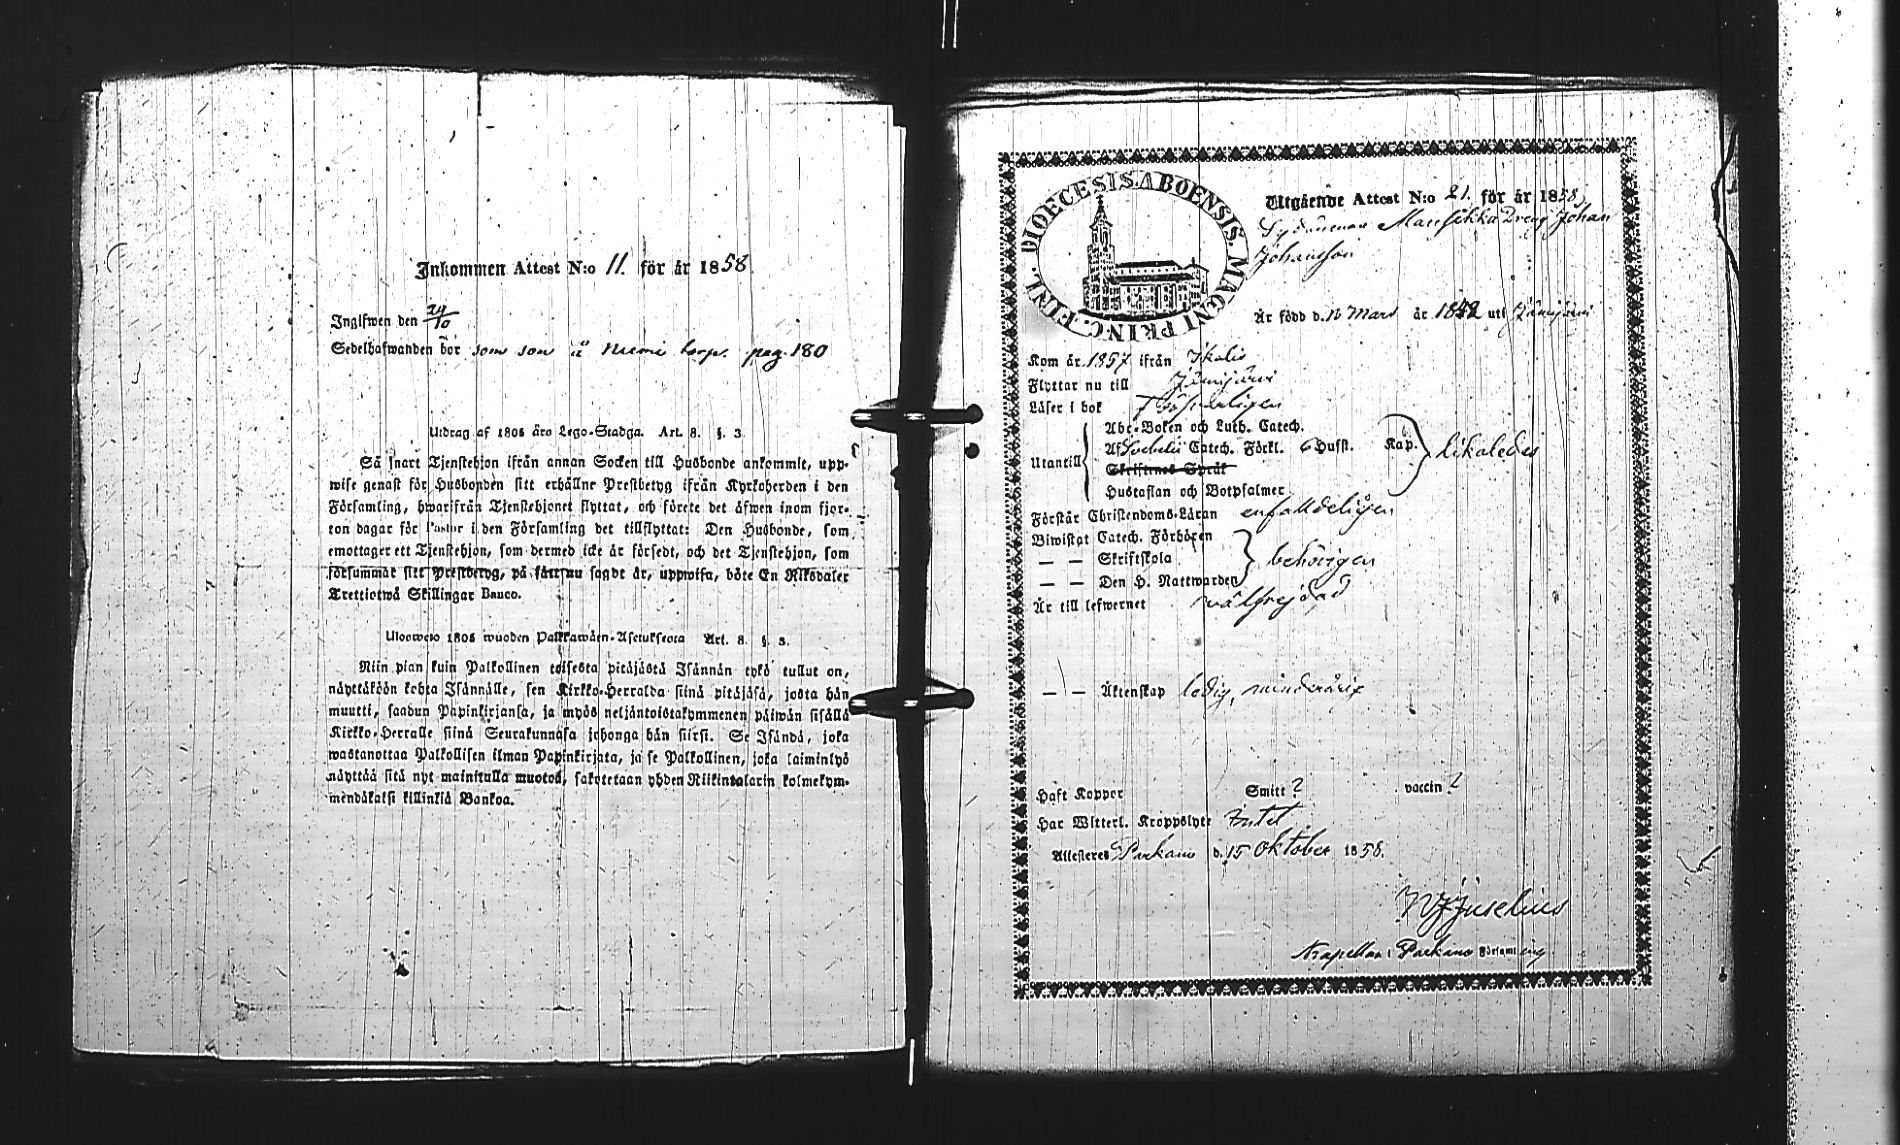 Inkommen Attest N:o 11. för år 1858
Ingifwen den 24/10
Sedelhafwanden bör som son å Niemi torp. pag. 180
Utdrag af 1805 års Lego-Stadga. Art. 8. §. 3.
Så snart Tjenstehjon ifrån annan Socken till Husbonde ankommit, upp-
wise genast för Husbonden sitt erhållne Prestbetyg ifrån Kyrkoherden i den
Församling, hwarifrån Tjenstehjonet flyttat, och förete det äfwen inom fjor-
ton dagar för Pastor i den Församling det tillflyttat: Den Husbonde, som
emottager ett Tjenstehjon, som dermed icke är försedt, och det Tjenstehjon, som
försummat sitt Prestbetyg, på sätt nu sagdt är, uppwisa, böte En Riksdaler
Trettiotwå Skillingar Banco.
Ulosweto 1805 wuoden Palkkawäen-Asetuksesta Art. 8. §. 3.
Niin pian kuin Palkollinen toisesta pitäjästä Isännän tykö tullut on,
näyttäköön kohta Isännälle, sen Kirkko-Herralda siinä pitäjäsä, josta hän
muutti, saadun Papinkirjansa, ja myös neljäntoistakymmenen päiwän sisällä
Kirkko-Herralle siinä Seurakunnasa johonga hän siirsi. Se Isändä, joka
wastanottaa Palkollisen ilman Papinkirjata, ja se Palkollinen, joka laiminlyö
näyttää sitä nyt mainitulla muotoa, sakotetaan yhden Riikintalarin kolmekym-
mendäkaksi killinkiä Bankoa.
DIOECESIS ABOENSIS. MAGNI PRINC. FINL.
Utgående Attest N:o 21. för år 1858
Sydänmaa Mansikka Dreng Johan
Johansson
Är född d. 12 Mars år 1842 uti Jämijärvi
Kom år 1857 ifrån Ikalis
Flyttar nu till Jämijärvi
Läser i bok försvarligen
Abc-Boken och Luth. Catech.
Utantill Af Svebelii Catech. Förkl. 6 Hufst. Kap. likaledes
Skriftenes Språk
Hustaflan och Botpsalmer
Förstår Christendoms-Läran enfalldeligen
Biwistat Catech. Förhören
— — Skriftskola behörigen
— — Den H. Nattwarden
Är till lefwernet välfrejdad
— — Äktenskap ledig, minderårig
Haft Koppor Smitt ? vaccin ?
Har Witterl. Kroppslyte Intet
Attesteres Parkano d. 15 Oktober 1858.
Juselius
Kapellan i Parkano Församling